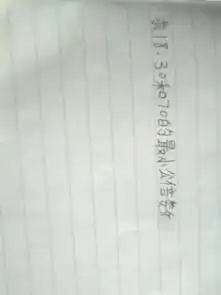 求18.30和70的最小公倍数